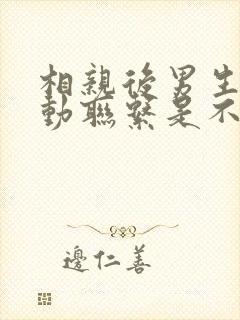 相親後男生
動聯繫是不
邊仁善